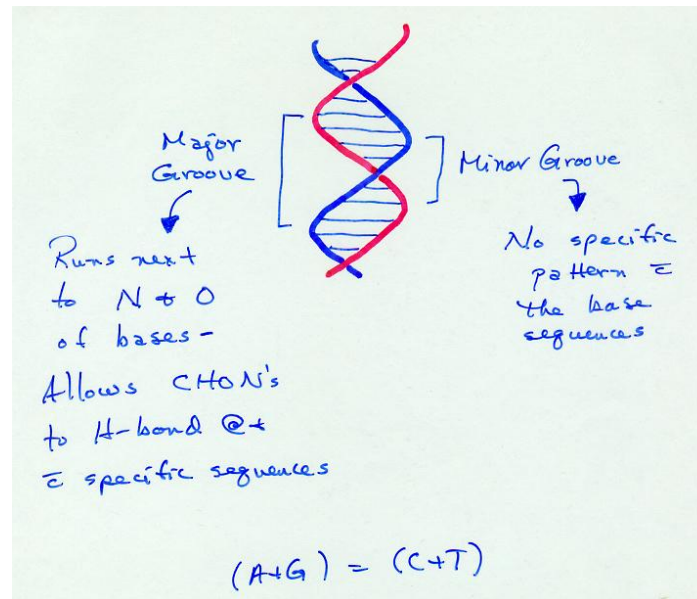 Major
Groove
Minor Groove
Runs next
to N & O
of bases -
Allows CHON's
to H-bond @
c̄ specific sequences
No specific
pattern c̄
the base
sequences
(A+G) = (C+T)